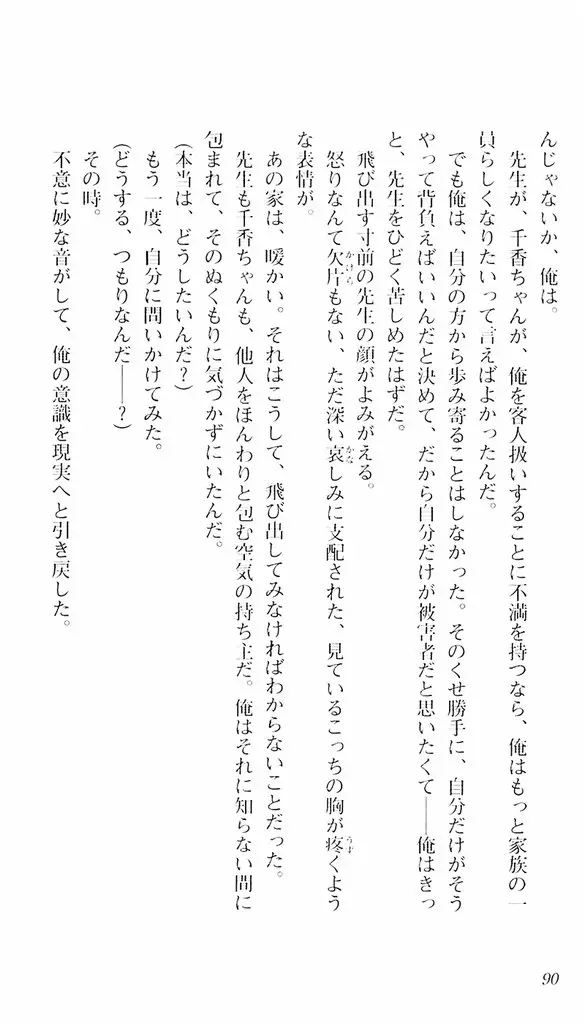 んじゃないか、俺は。
先生が、千香ちゃんが、俺を客人扱いすることに不満を持つなら、俺はもっと家族の一
員らしくなりたいって言えばよかったんだ。
でも俺は、自分の方から歩み寄ることはしなかった。そのくせ勝手に、自分だけがそう
やって背負えばいいんだと決めて、だから自分だけが被害者だと思いたくて――俺はきっ
と、先生をひどく苦しめたはずだ。
飛び出す寸前の先生の顔がよみがえる。
怒りなんて欠片もない、ただ深い哀しみに支配された、見ているこっちの胸が疼くよう
な表情が。
あの家は、暖かい。それはこうして、飛び出してみなければわからないことだった。
先生も千香ちゃんも、他人をほんわりと包む空気の持ち主だ。俺はそれに知らない間に
包まれて、そのぬくもりに気づかずにいたんだ。
(本当は、どうしたいんだ?)
もう一度、自分に問いかけてみた。
(どうする、つもりなんだ――?)
その時。
不意に妙な音がして、俺の意識を現実へと引き戻した。
90